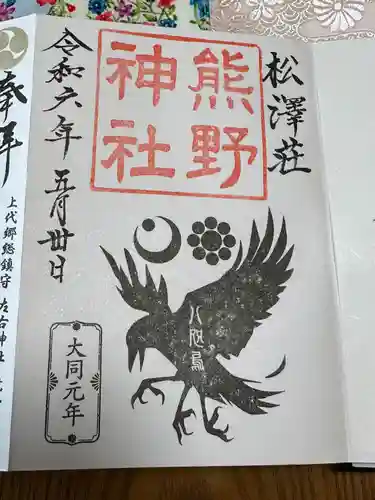 松澤荘
熊野
神社
令和六年 五月卅日
八咫烏
大同元年
奉拝
上代郷総鎮守 左右神社